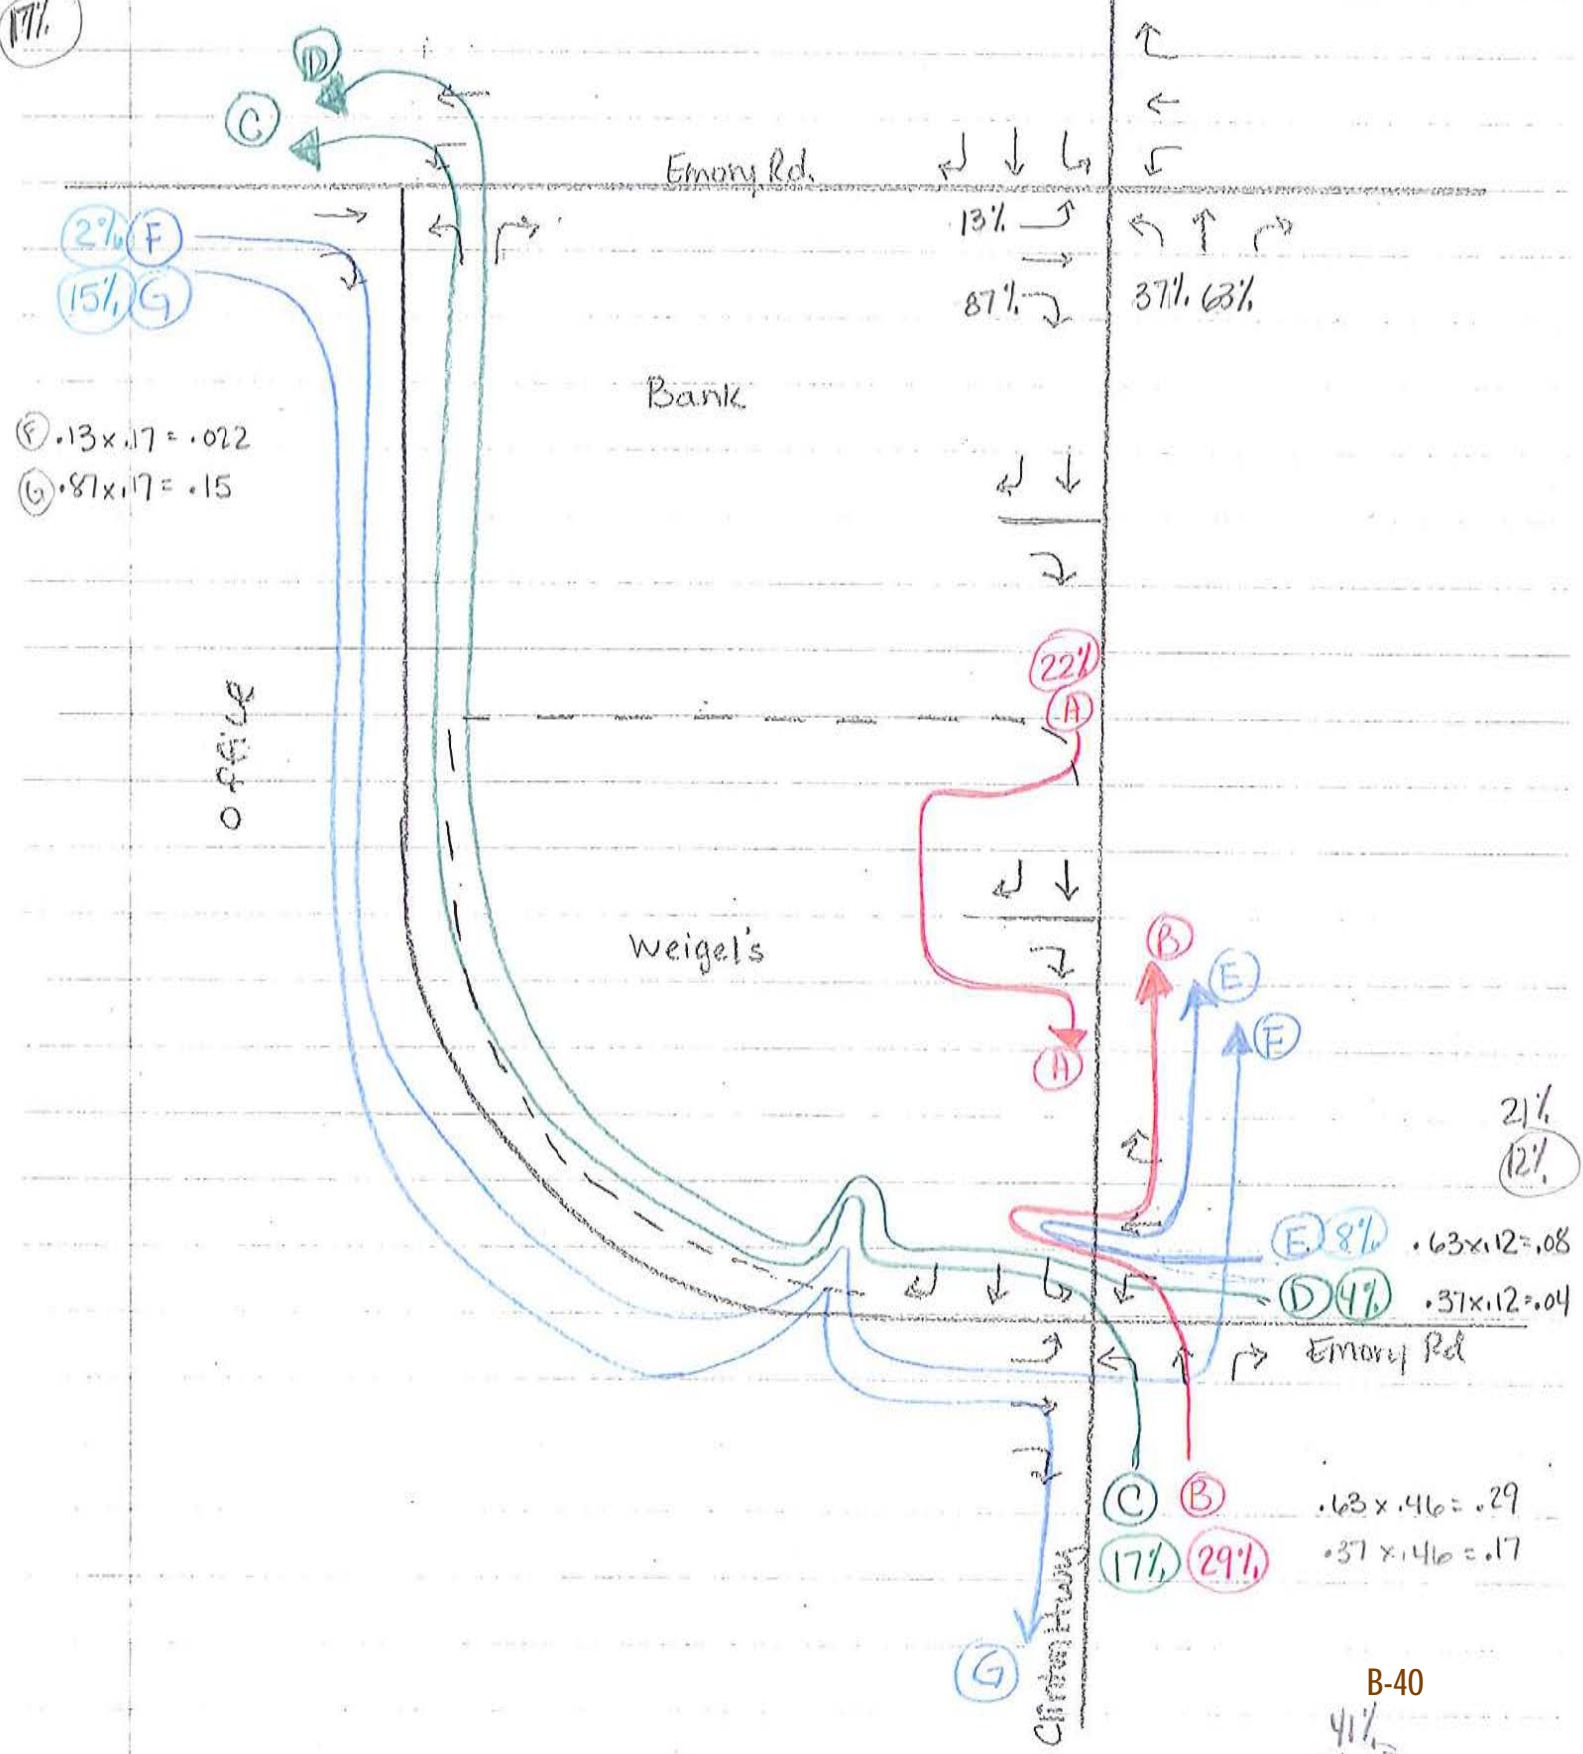 17%
D
C
Emory Rd.
2% F
15% G
13%
87%
37% 63%
Bank
F .13 x .17 = .022
G .87 x .17 = .15
22%
A
office
Weigel's
B
E
F
A
21%
12%
E 8% .63x.12=.08
D 4% .37x.12=.04
Emory Rd
C B .63 x .46 = .29
17% 29% .37 x .46 = .17
Clinton Hwy
G
B-40
41%